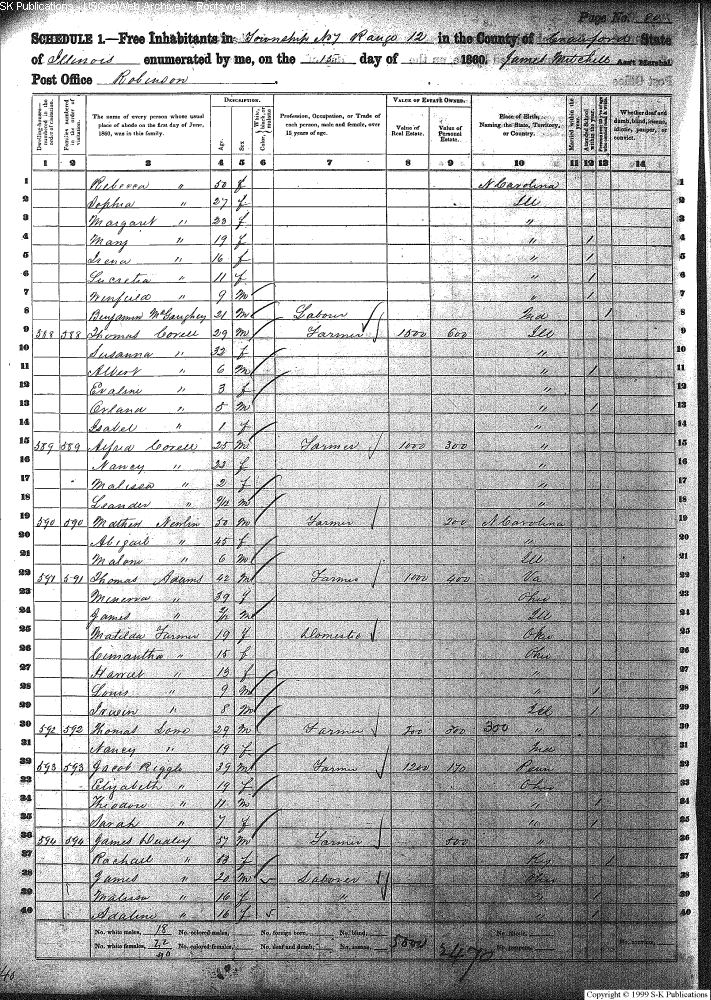 SK Publications - USGenWeb Archives - Rootsweb
Page No.
SCHEDULE 1.—Free Inhabitants in Township N 7 Range 12 in the County of Crawford State
of Illinois enumerated by me, on the 15 day of 1860. James Mitchell Ass't Marshal.
Post Office Robinson
Dwelling-houses—numbered in the order of visitation.
Families numbered in the order of visitation.
The name of every person whose usual place of abode on the first day of June, 1860, was in this family.
DESCRIPTION.
Age.
Sex.
Color, {White, black, or mulatto.
Profession, Occupation, or Trade of each person, male and female, over 15 years of age.
VALUE OF ESTATE OWNED.
Value of Real Estate.
Value of Personal Estate.
Place of Birth, Naming the State, Territory, or Country.
Married within the year.
Whether deaf and dumb, blind, insane, idiotic, pauper, or convict.
1 2 3 4 5 6 7 8 9 10 11 12 13 14
1 Rebecca " 50 f N Carolina 1
2 Sophia " 27 f Ill 2
3 Margaret " 23 f " 3
4 Mary " 19 f " 1 4
5 Irena " 16 f " 1 5
6 Lucretia " 11 f " 1 6
7 Winfield " 9 m " 1 7
8 Benjamin McGaughey 21 m Labour Ind 1 8
9 588 588 Thomas Covell 29 m Farmer 1500 600 Ill 9
10 Susanna " 32 f " 10
11 Albert " 6 m " 1 11
12 Evaline " 3 f " 12
13 Orland " 5 m " 1 13
14 Isabel " 1 f " 14
15 589 589 Alfred Covell 25 m Farmer 1000 300 " 15
16 Nancy " 23 f " 16
17 Malissa " 2 f " 17
18 Leander " 9/12 m " 18
19 590 590 Mathew Newlin 50 m Farmer 200 N Carolina 19
20 Abigail " 45 f " 20
21 " 6 m Ill 21
22 591 591 Thomas Adams 42 m Farmer 1000 400 Va 22
23 Minerva " 39 f Ohio 23
24 James " m Ill 24
25 Matilda Farmer 19 f Domestic Ohio 25
26 Cimantha " 15 f Ohio 26
27 Harriet " 13 f " 27
28 Louis " 9 m " 1 28
29 Irwin " 8 m Ill 1 29
30 592 592 Thomas 29 m Farmer 300 300 " 30
31 Nancy " 19 f Ind 31
29 593 593 Jacob Riggle 39 m Farmer 1200 170 Penn
33 Elizabeth " 19 f Ohio 33
34 Theodore " 11 m " 1 24
25 Sarah " 7 f " 1 25
36 594 594 James 57 m Farmer 500 " 26
27 Rachael " 53 f Ky 1 27
28 James " 20 m Laborer Ohio 28
29 " 16 f " " 1 29
40 Adaline " 16 f " 1 40
No. white males, 18 No. colored males, No. foreign born, No. blind, No. idiotic,
No. white females, 22 No. colored females, No. deaf and dumb, No. insane, No. paupers, No. convicts,
40
2470
Copyright © 1999 S-K Publications